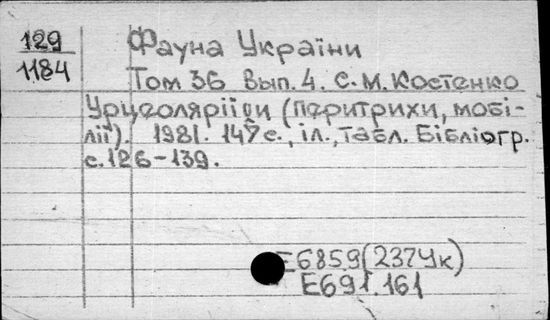 129
1184
Фауна України
Том 36 Вып. 4. С.М. Костенко
Урцеоляріїди (перитрихи, мобі-
лії). 1981. 147с., іл., табл. Бібліогр.
с. 126-139.
Е6859(237Ук)
Е691.161